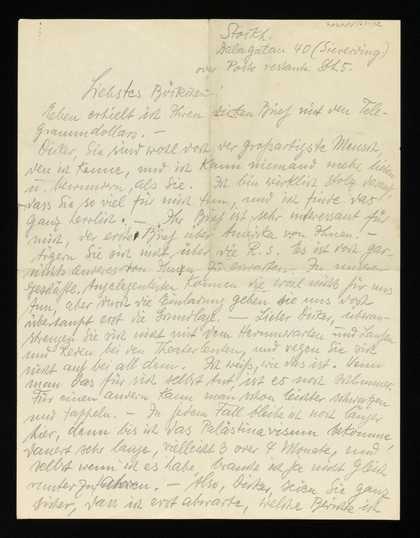 Stockh.
Dalagatan 40 (Sieverding)
oder Poste restante Sth 5.
Liebstes Böskisen!
Eben erhielt ich Ihren dicken Brief mit den Tele-
gramm dollars. —
Oskar, Sie sind wohl doch der großartigste Mensch,
den ich kenne, und ich kann niemand mehr lieben
u. bewundern, als Sie. Ich bin wirklich stolz darauf,
dass Sie so viel für mich tun, und ich finde das
ganz herrlich. — Ihr Brief ist sehr interessant für
mich, der erste Brief über Amerika von Ihnen! —
Ärgern Sie sich nicht über die R. S. Es ist doch gar
nichts anderes von Ihnen zu erwarten. In meiner
Angelegenheiten können die wohl nichts für uns
tun, aber durch die Einladung geben sie uns doch
überhaupt erst die Grundlage. — Lieber Oskar, überan-
strengen Sie sich nicht mit dem Herumwarten und Laufen
und Reden bei den Theaterleuten, und regen Sie sich
nicht auf bei all dem. Ich weiß, wie das ist. Wenn
man das für sich selbst tut, ist es noch schlimmer.
Für einen andern kann man schon leichter schwatzen
und zappeln. — In jedem Fall bleibe ich noch länger
hier, denn bis ich das Palästinavisum bekomme
dauert sehr lange, vielleicht 3 oder 4 Monate, und
selbst wenn ich es habe, brauche ich ja nicht gleich
runter zu fahren. — Also, Oskar, seien Sie ganz
sicher, dass ich erst abwarte, welche Berichte ich